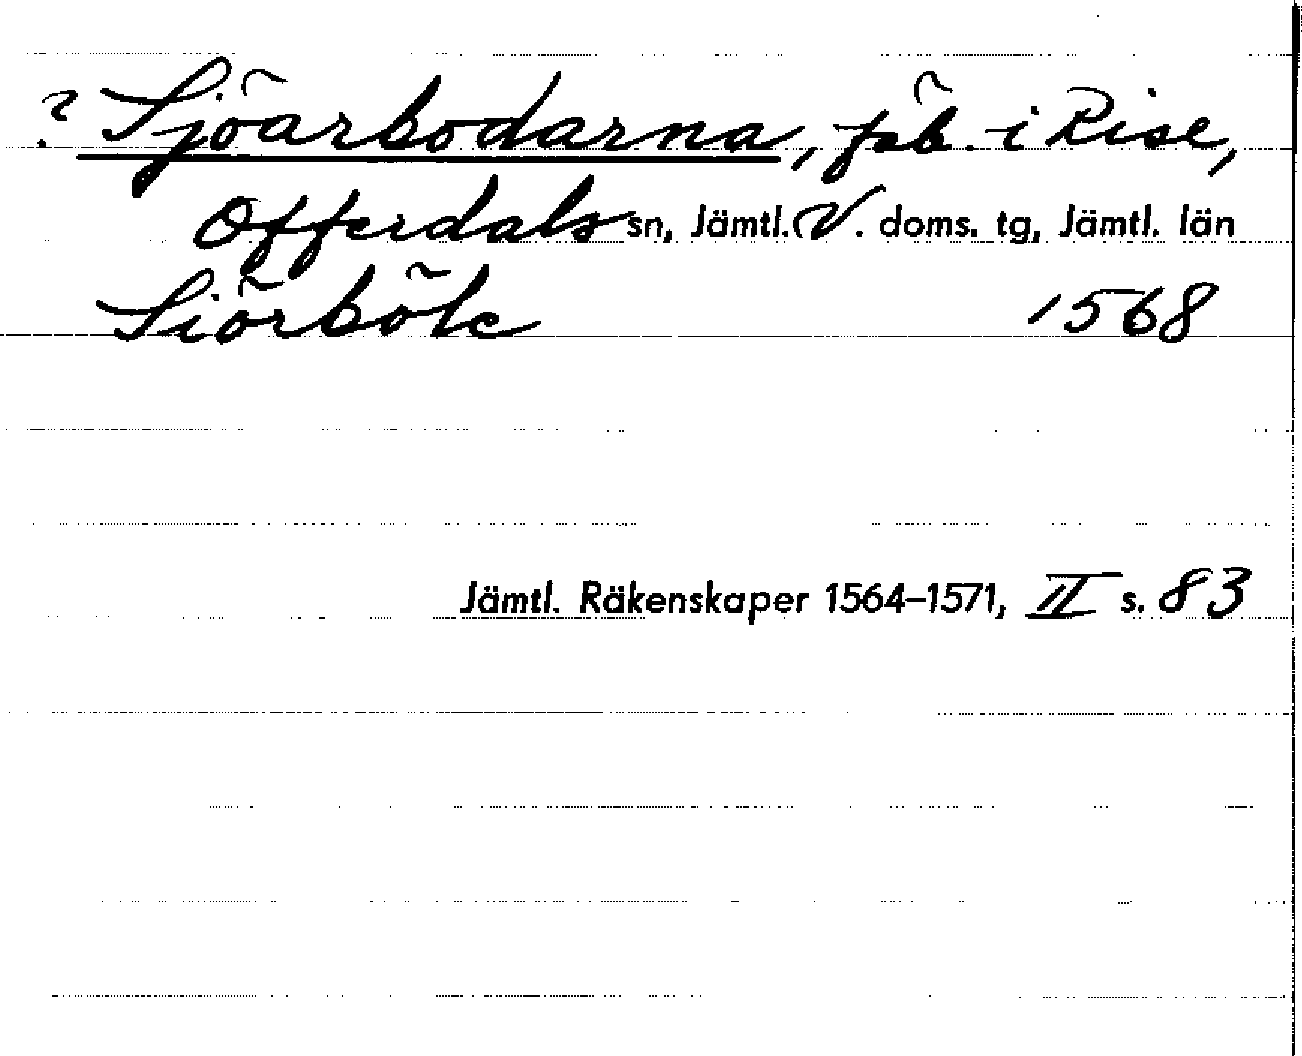 ? Sjöarbodarna, fäb. i Rise,
Offerdals sn, Jämtl. V. doms. tg, Jämtl. län
Siörböle 1568
Jämtl. Räkenskaper 1564–1571, II s. 83